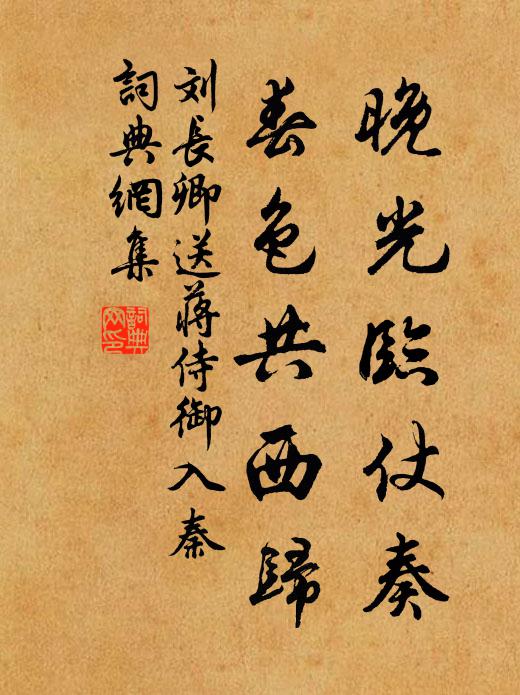 晚光臨仗奏
春色共西歸
刘長卿送蒋侍御入秦
詞典網集
詞典網印